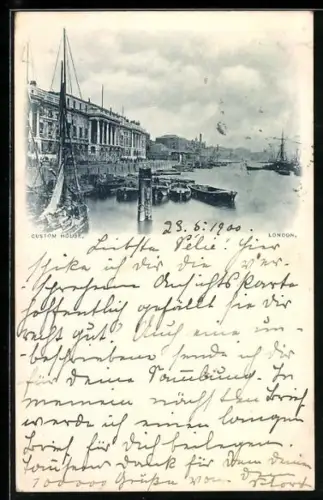 CUSTOM HOUSE, LONDON,
23.6.1900.
Liebste Feli! Hier
schicke ich dir die ver-
sprochene Ansichtskarte
hoffentlich gefällt sie dir
recht gut? Auch eine un-
beschriebene sende ich dir
für deine Sammlung. In
meinem nächsten Brief
werde ich einen langen
Brief für dich beilegen.
Tausend Dank für
100000 Grüße von